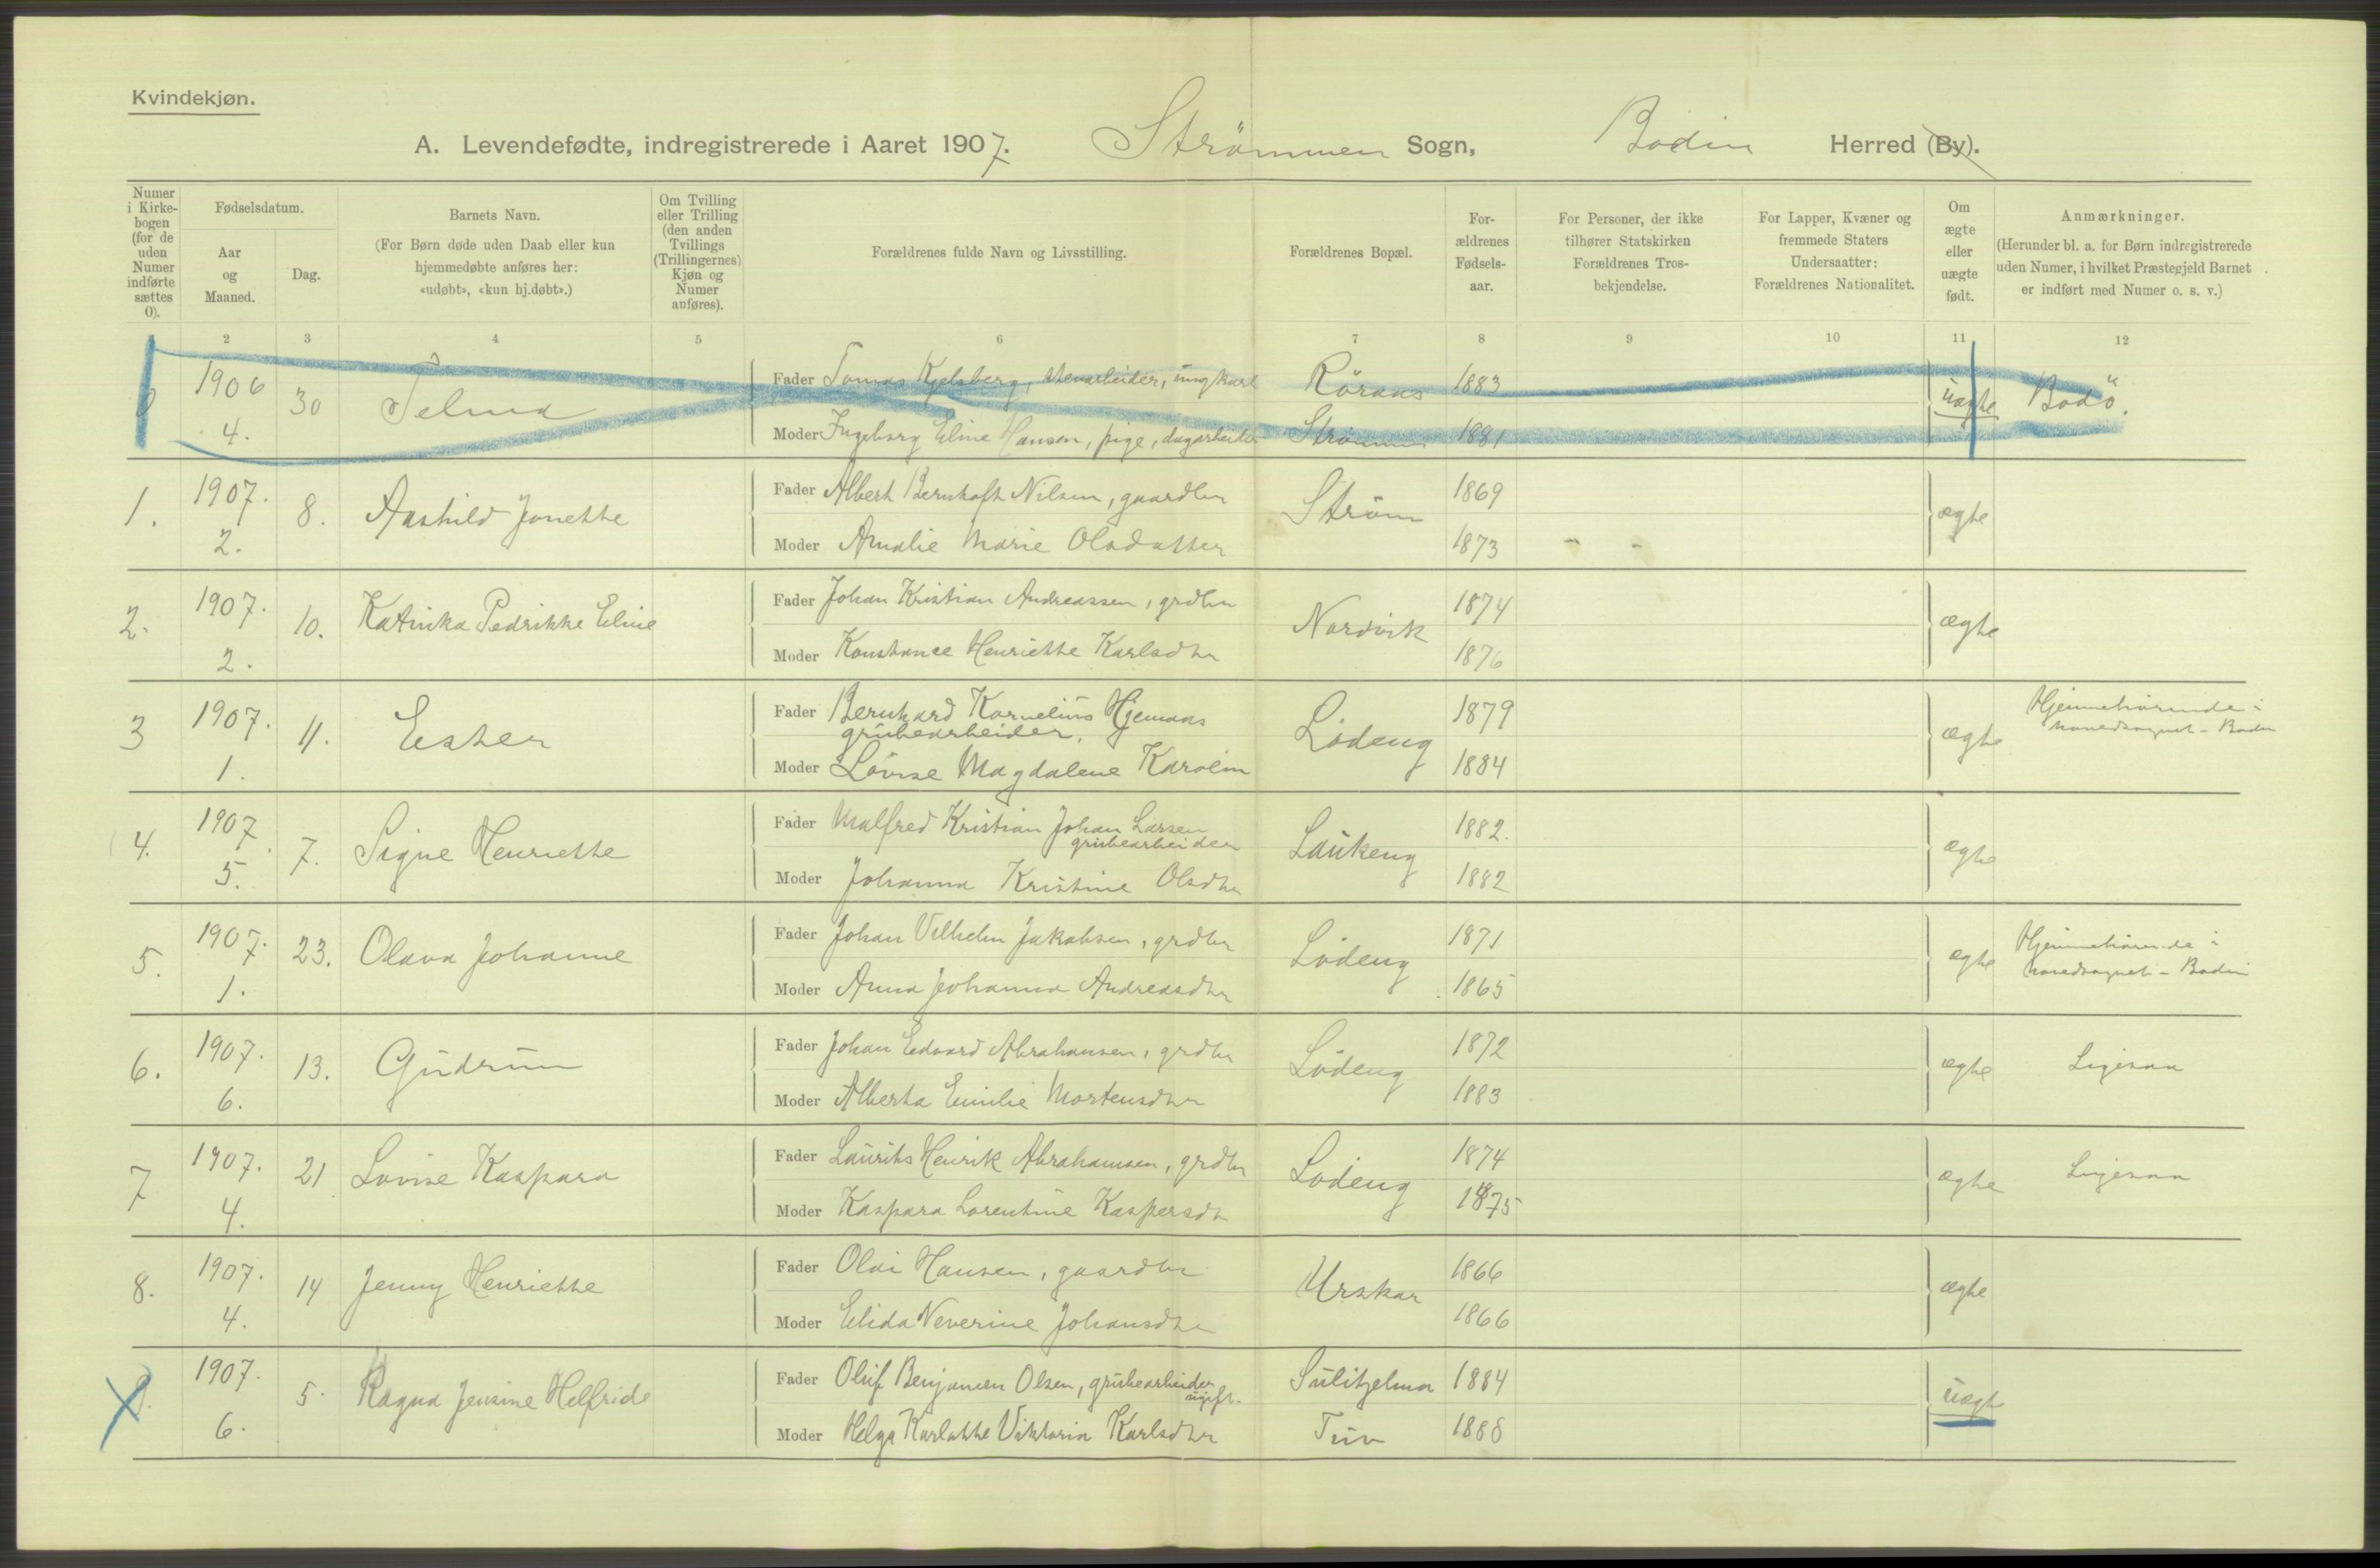 Kvindekjøn.
A. Levendefødte, indregistrerede i Aaret 1907. Strömmen Sogn, Bodin Herred (By).
Numer i Kirke- bogen (for de uden Numer indførte sættes 0).
Fødselsdatum.
Aar og Maaned.
Dag.
Barnets Navn.
(For Børn døde uden Daab eller kun
hjemmedøbte anføres her:
«udøbt», «kun hj.døbt».)
Om Tvilling
eller Trilling
(den anden
Tvillings
(Trillingernes)
Kjøn og
Numer
anføres).
Forældrenes fulde Navn og Livsstilling.
Forældrenes Bopæl.
For-
ældrenes
Fødsels-
aar.
For Personer, der ikke
tilhører Statskirken
Forældrenes Tros-
bekjendelse.
For Lapper, Kvæner og
fremmede Staters
Undersaatter:
Forældrenes Nationalitet.
Om
ægte
eller
uægte
født.
Anmærkninger.
(Herunder bl. a. for Børn indregistrerede
uden Numer, i hvilket Præstegjeld Barnet
er indført med Numer o. s. v.)
2 3 4 5 6 7 8 9 10 11 12
0 1906 4. 30 Selma
Fader Tomas Kjelsberg, stenarbeider, ungkarl Röraas 1883
Moder Ingeborg Eline Hansen, pige, dagarbeider Strömmen 1881
uægte Bodö.
1. 1907. 2. 8. Aashild Jonette
Fader Albert Bernhoft Nilsen, gaardbr Ström 1869
Moder Amalie Marie Olsdatter 1873
ægte
2. 1907. 2. 10. Katinka Pedrikke Eline
Fader Johan Kristian Andreassen, grdbr Nordvik 1874
Moder Konstance Henriette Karlsdtr 1876
ægte
3 1907. 1. 11. Ester
Fader Bernhard Kornelius Hjemaas
grubearbeider. Lödeng 1879
Moder Lovise Magdalene Karolin 1884
ægte Hjemmehörende i
hovedsognet - Bodin
4. 1907 5. 7. Signe Henriette
Fader Malfred Kristian Johan Larsen
grubearbeider Laukeng 1882.
Moder Johanna Kristine Olsdtr 1882
ægte
5. 1907. 1. 23. Olava Johanne
Fader Johan Vilhelm Jakobsen, grdbr Lödeng 1871
Moder Anna Johanna Andreasdtr 1865
ægte Hjemmehörende i
hovedsognet - Bodin
6. 1907. 6. 13. Gudrun
Fader Johan Edvard Abrahamsen, grdbr Lödeng 1872
Moder Alberta Emilie Mortensdtr 1883
ægte Ligesaa
7 1907. 4. 21 Lovise Kaspara
Fader Laurits Henrik Abrahamsen, grdbr Lödeng 1874
Moder Kaspara Lorentine Kaspersdtr 1875
ægte Ligesaa
8. 1907. 4. 14 Jenny Henriette
Fader Olai Hansen, gaardbr Urskar 1866
Moder Elida Neverine Johansdtr 1866
ægte
9. 1907. 6. 5. Ragna Jensine Helfride
Fader Oluf Benjamen Olsen, grubearbeider
ugift. Sulitjelma 1884
Moder Helga Karlotte Viktoria Karlsdtr Tuv 1888
uægte